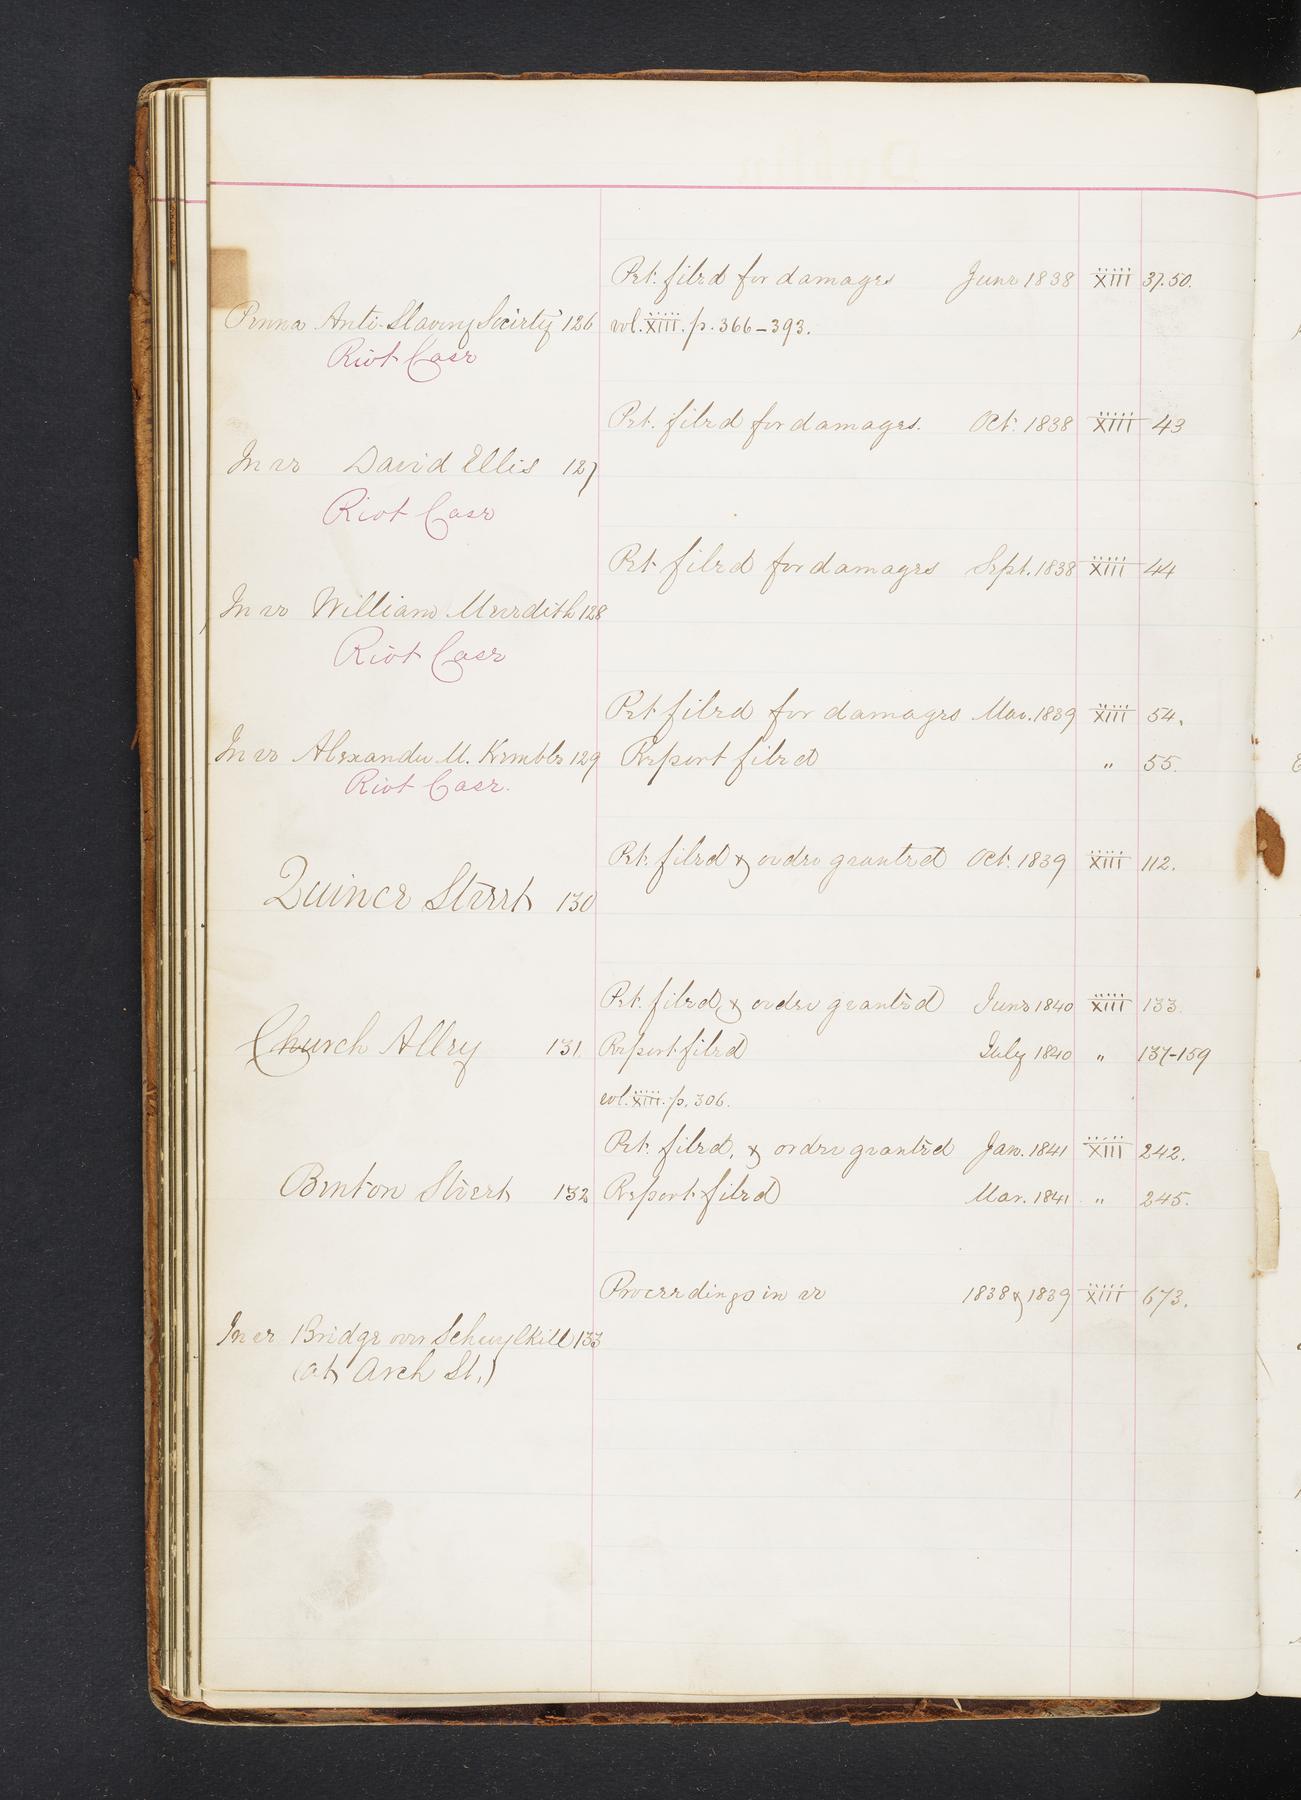 Pet. filed for damages June 1838 XIII 37.50.
Penna Anti-Slavery Society 126 vol. XIII. p. 366-393.
Riot Case
Pet. filed for damages. Oct. 1838 XIII 43
In re David Ellis 127
Riot Case
Pet. filed for damages Sept. 1838 XIII 44
In re William Meredith 128
Riot Case
Pet filed for damages Mar. 1839 XIII 54.
In re Alexander M. Kembles 129 Report filed " 55.
Riot Case.
Pet. filed & order granted Oct. 1839 XIII 112.
Quince Street 130
Pet. filed & order granted June 1840 XIII 133.
Church Alley 131 Report filed July 1840 " 137-159
vol. XIII. p. 306.
Pet. filed. & order granted Jan. 1841 XIII 242.
Benton Street 132 Report filed Mar. 1841 " 245.
Proceedings in re 1838 & 1839 XIII 673.
In re Bridge over Schuylkill 133
(at Arch St.)